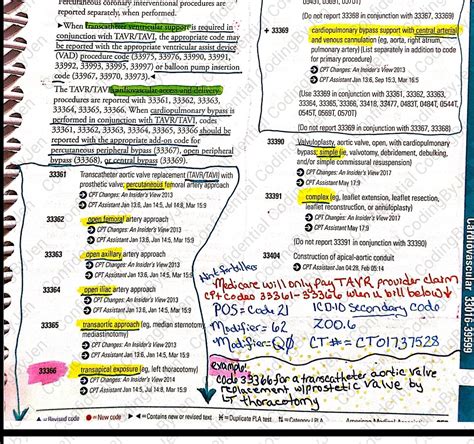 Percutaneous coronary interventional procedures are
reported separately, when performed.
►When transcatheter ventricular support is required in
conjunction with TAVR/TAVI, the appropriate code may
be reported with the appropriate ventricular assist device
(VAD) procedure code (33975, 33976, 33990, 33991,
33992, 33993, 33995, 33997) or balloon pump insertion
code (33967, 33970, 33973).◄
The TAVR/TAVI cardiovascular access and delivery
procedures are reported with 33361, 33362, 33363,
33364, 33365, 33366. When cardiopulmonary bypass is
performed in conjunction with TAVR/TAVI, codes
33361, 33362, 33363, 33364, 33365, 33366 should be
reported with the appropriate add-on code for
percutaneous peripheral bypass (33367), open peripheral
bypass (33368), or central bypass (33369).
33361 Transcatheter aortic valve replacement (TAVR/TAVI) with
prosthetic valve; percutaneous femoral artery approach
CPT Changes: An Insider's View 2013
CPT Assistant Jan 13:6, Jan 14:5, Jul 14:8, Mar 15:9
33362 open femoral artery approach
CPT Changes: An Insider's View 2013
CPT Assistant Jan 13:6, Jan 14:5, Jul 14:8, Mar 15:9
33363 open axillary artery approach
CPT Changes: An Insider's View 2013
CPT Assistant Jan 13:6, Jan 14:5, Jul 14:8, Mar 15:9
33364 open iliac artery approach
CPT Changes: An Insider's View 2013
CPT Assistant Jan 13:6, Jan 14:5, Jul 14:8, Mar 15:9
33365 transaortic approach (eg, median sternotomy,
mediastinotomy)
CPT Changes: An Insider's View 2013
CPT Assistant Jan 13:6, Jan 14:5, Jul 14:8, Mar 15:9
33366 transapical exposure (eg, left thoracotomy)
CPT Changes: An Insider's View 2014
CPT Assistant Jan 14:5, Jul 14:8, Mar 15:9
(Do not report 33368 in conjunction with 33367, 33369)
+ 33369 cardiopulmonary bypass support with central arterial
and venous cannulation (eg, aorta, right atrium,
pulmonary artery) (List separately in addition to code
for primary procedure)
CPT Changes: An Insider's View 2013
CPT Assistant Jan 13:6, Sep 15:3, Mar 16:5
(Use 33369 in conjunction with 33361, 33362, 33363,
33364, 33365, 33366, 33418, 33477, 0483T, 0484T, 0544T,
0545T, 0569T, 0570T)
(Do not report 33369 in conjunction with 33367, 33368)
33390 Valvuloplasty, aortic valve, open, with cardiopulmonary
bypass; simple (ie, valvotomy, debridement, debulking,
and/or simple commissural resuspension)
CPT Changes: An Insider's View 2017
CPT Assistant May 17:9
33391 complex (eg, leaflet extension, leaflet resection,
leaflet reconstruction, or annuloplasty)
CPT Changes: An Insider's View 2017
CPT Assistant May 17:9
(Do not report 33391 in conjunction with 33390)
33404 Construction of apical-aortic conduit
CPT Assistant Jan 04:28, Feb 05:14
Hint for billers
Medicare will only pay TAVR provider claim
CPT codes 33361-33366 when u bill below↓
POS= Code 21 ICD-10 secondary code
Modifier= 62 Z00.6
Modifier= Q0 CT#= CT01737528
example:
code 33366 for a transcatheter aortic valve
replacement w/prostetic valve by
LT thoracotomy
Cardiovascular 33016-39599
▲=Revised code ●=New code ►◄=Contains new or revised text